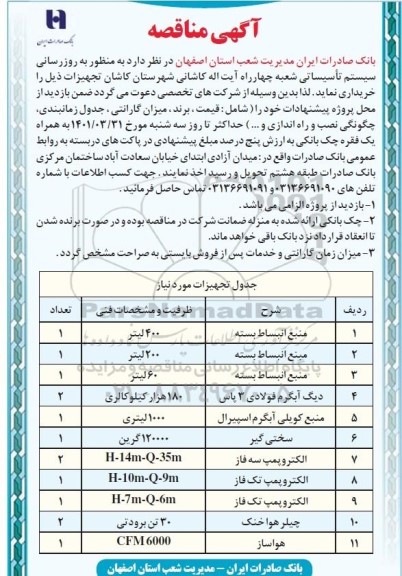 بانک صادرات ایران
آگهی مناقصه
بانک صادرات ایران مدیریت شعب استان اصفهان در نظر دارد به منظور به روزرسانی
سیستم تأسیساتی شعبه چهارراه آیت اله کاشانی شهرستان کاشان تجهیزات ذیل را
خریداری نماید. لذا بدین وسیله از شرکت های تخصصی دعوت می گردد ضمن بازدید از
محل پروژه پیشنهادات خود را (شامل: قیمت، برند، میزان گارانتی، جدول زمانبندی،
چگونگی نصب و راه اندازی و ...) حداکثر تا روز سه شنبه مورخ ۱۴۰۱/۰۳/۳۱ به همراه
یک فقره چک بانکی به ارزش پنج درصد مبلغ پیشنهادی در پاکت های دربسته به روابط
عمومی بانک صادرات واقع در: میدان آزادی ابتدای خیابان سعادت آباد ساختمان مرکزی
بانک صادرات طبقه هشتم تحویل و رسید اخذ نمایند. جهت کسب اطلاعات با شماره
تلفن های ۰۳۱۳۶۶۹۱۰۹۰ و ۰۳۱۳۶۶۹۱۰۹۱ تماس حاصل فرمائید.
۱- بازدید از پروژه الزامی می باشد.
۲- چک بانکی ارائه شده به منزله ضمانت شرکت در مناقصه بوده و در صورت برنده شدن
تا انعقاد قرارداد نزد بانک باقی خواهد ماند.
۳- میزان زمان گارانتی و خدمات پس از فروش بایستی به صراحت مشخص گردد.
جدول تجهیزات مورد نیاز
ردیف شرح ظرفیت و مشخصات فنی تعداد
۱ منبع انبساط بسته ۴۰۰ لیتر ۱
۲ منبع انبساط بسته ۲۰۰ لیتر ۱
۳ منبع انبساط بسته ۶۰ لیتر ۱
۴ دیگ آبگرم فولادی ۳ پاس ۱۸۰ هزار کیلوکالری ۲
۵ منبع کویلی آبگرم اسپیرال ۱۰۰۰ لیتری ۱
۶ سختی گیر ۱۲۰۰۰۰ گرین ۱
۷ الکتروپمپ سه فاز H-14m-Q-35m ۲
۸ الکتروپمپ تک فاز H-10m-Q-9m ۱
۹ الکتروپمپ تک فاز H-7m-Q-6m ۱
۱۰ چیلر هوا خنک ۳۰ تن برودتی ۲
۱۱ هواساز CFM 6000 ۱
بانک صادرات ایران - مدیریت شعب استان اصفهان